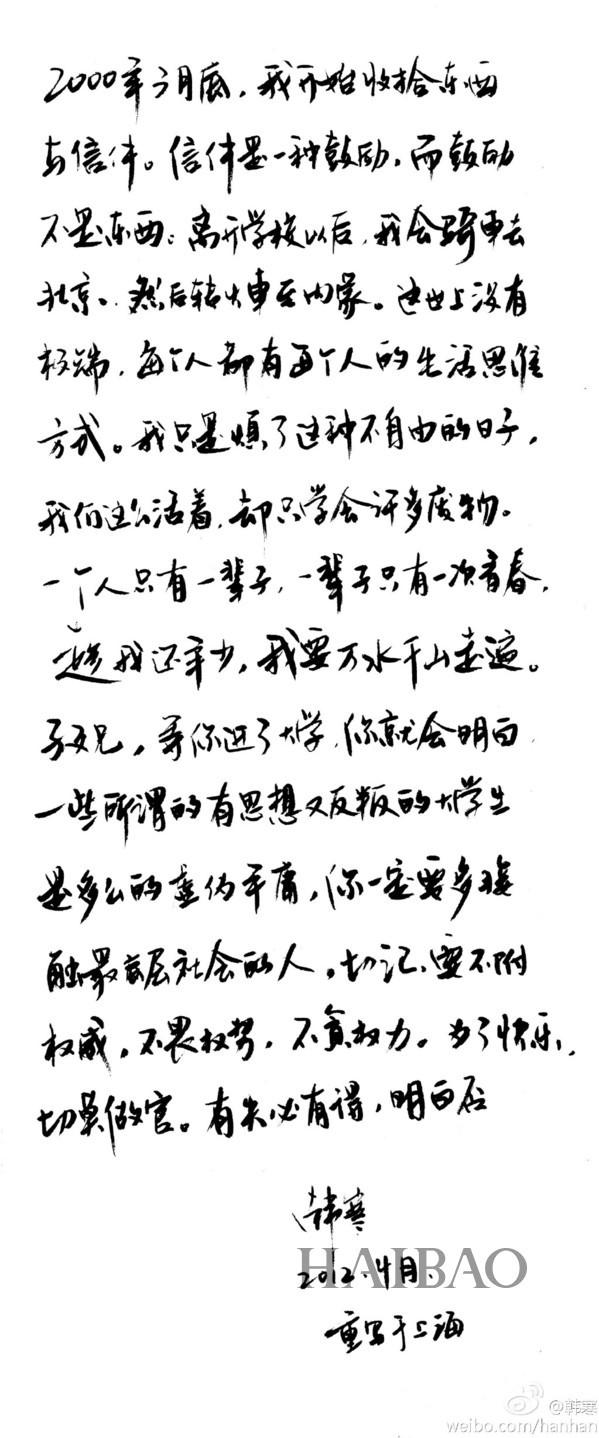 2000年3月底,我开始收拾东西
与信件。信件是一种鼓励,而鼓励
不是东西。离开学校以后,我会骑车去
北京。然后转火车至内蒙。这世上没有
极端,每个人都有每个人的生活思维
方式。我只是烦了这种不自由的日子,
我们这么活着,却只学会许多废物。
一个人只有一辈子,一辈子只有一次青春,
趁我还年少,我要万水千山走遍。
兄,等你进了大学,你就会明白
一些所谓的有思想又反叛的大学生
是多么的虚伪平庸,你一定要多接
触最底层社会的人。切记,要不附
权威,不畏权势,不贪权力。为了快乐,
切莫做官。有失必有得,明白否
韩寒
2012.4月.
重写于上海
HAIBAO
@韩寒
weibo.com/hanhan